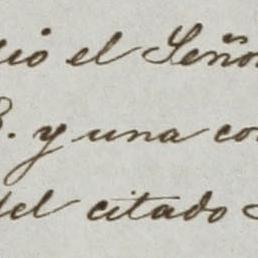 dió el Señor
B. y una co
del citado